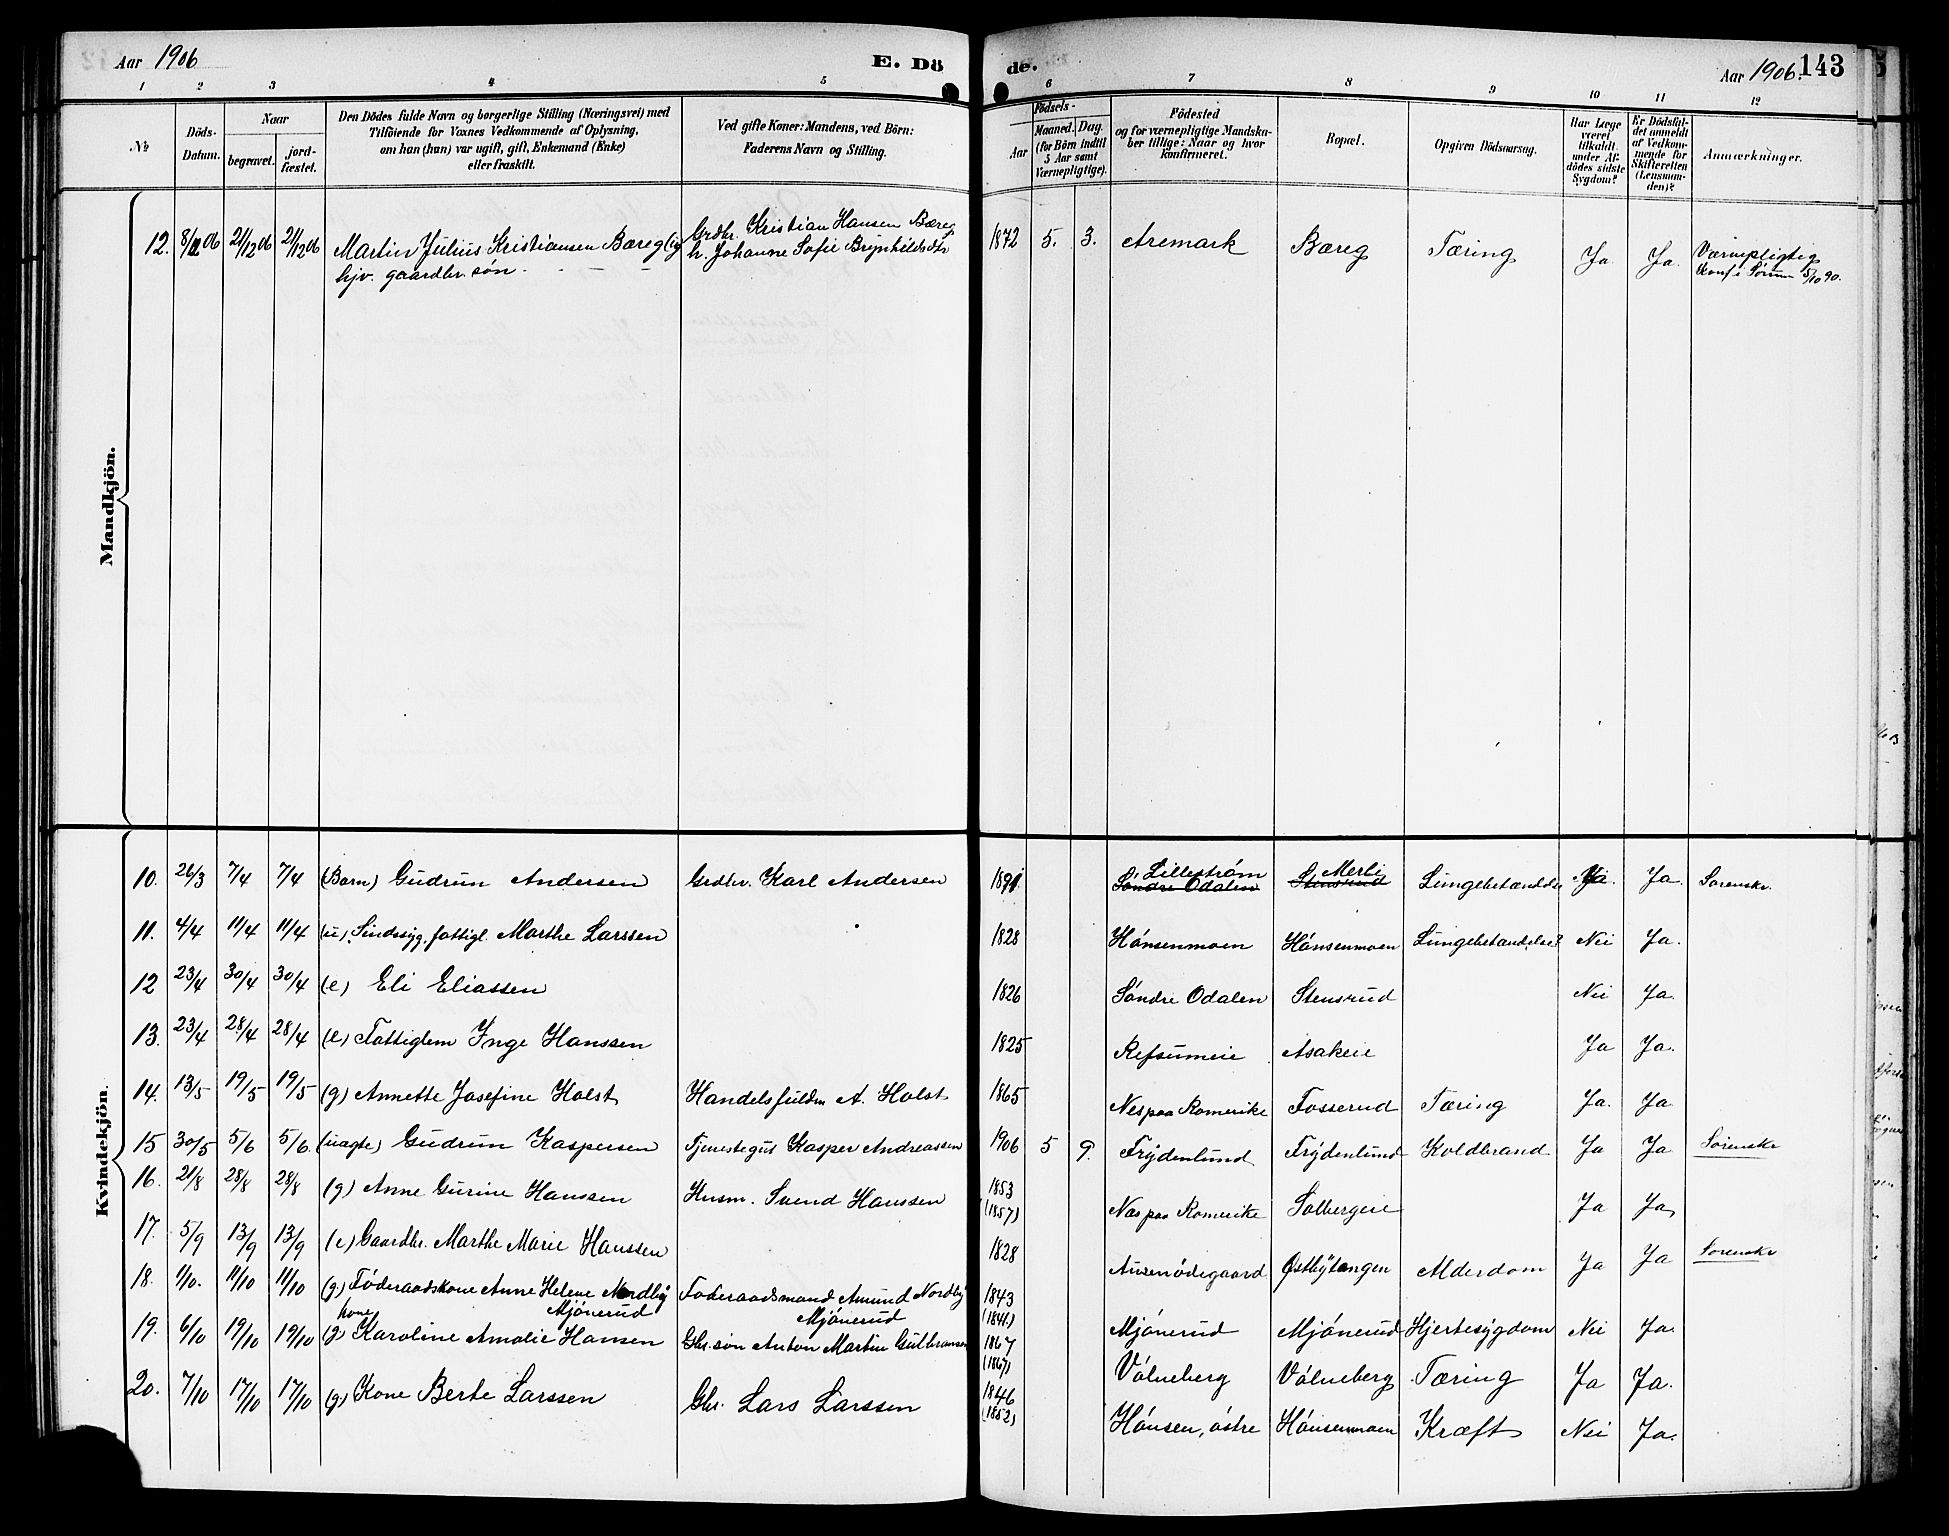 Aar 1906
E. Dö
de.
Aar 1906.
143
1 2 3 4 5 6 7 8 9 10 11 12
No
Döds-Datum.
Naar
begravet.
jord-fæstet.
Den Dödes fulde Navn og borgerlige Stilling (Næringsvei) med
Tilföiende for Voxnes Vedkommende af Oplysning,
om han (hun) var ugift, gift, Enkemand (Enke)
eller fraskilt.
Ved gifte Koner: Mandens, ved Börn:
Faderens Navn og Stilling.
Födsels-
Aar
Maaned. Dag.
(for Börn indtil
5 Aar samt
Værnepligtige).
Födested
og for værnepligtige Mandska-
ber tillige: Naar og hvor
konfirmeret.
Bopæl.
Opgiven Dödsaarsag.
Har Læge
været
tilkaldt
under Af-
dödes sidste
Sygdom?
Er Dödsfal-
det anmeldt
af Vedkom-
mende for
Skifteretten
(Lensman-
den)?
Anmærkninger.
Mandkjön.
12. 8/12 06 21/12 06 21/12 06 Martin Julius Kristiansen Bæreg (ug) Grdbr. Kristian Hansen Bæreg 1872 5. 3. Aremark Bæreg Tæring Ja Ja. Værnepligtig
hjv. gaardbr. søn. h. Johanne Sofie Brynhildsdtr Konf i Sørum 5/10 90.
Kvindekjön.
10. 26/3 7/4 7/4 (Barn) Gudrun Andersen Grdbr. Karl Andersen 1891 Lillestrøm Merli Lungebetændelse Ja. Sorenskr.
Søndre Odalen Stensrud
11. 4/4 11/4 11/4 (u) Sindssyg, fattigl. Marthe Larssen 1828 Hónsenmoen Hónsenmoen Lungebetændelse? Nei Ja.
12 23/4 30/4 30/4 (e) Eli Eliassen 1826 Sóndre Odalen Stensrud Nei Ja.
13. 23/4 28/4 28/4 (e) Fattiglem Inge Hanssen 1825 Refsumeie Asakeie Ja Ja.
14. 13/5 19/5 19/5 (g) Annette Josefine Holst Handelsfuldm A. Holst 1865 Nes paa Romerike Fosserud Tæring Ja. Ja
15 30/5 5/6 5/6. (uægte) Gudrun Kaspersen Tjenestegut Kasper Andreassen 1906 5 9. Frýdenlund Frýdenlund Koldbrand Ja Ja Sorenskr
16. 21/8 28/8 28/8 (g) Anne Gurine Hanssen Husm. Svend Hanssen 1853
(1857) Næs paa Romerike Solbergeie Ja Ja
17. 5/9 13/9 13/9 (e) Gaardbr. Marthe Marie Hanssen 1828 Ausenódegaard Østbýtangen Alderdom Ja Ja Sorenskr
18. 1/10. 11/10 11/10 (g.) Fóderaadskone Anne Helene Nordbý Foderaadsmand Amund Nordbý 1843
Mjónerud Mjónerud (1841) Mjónerud Mjónerud Hjertesýgdom Nei Ja.
19. 6/10 19/10 19/10 (g) kone Karoline Amalie Hansen Gbr. søn Anton Martin Gulbransen 1867
(1867) Vólneberg Vólneberg Tæring Ja Ja.
20. 7/10 17/10 17/10 (g) Kone Berte Larssen Gbr. Lars Larssen 1846
(1852) Hónsen, óstre Hónsenmoen Kræft Nei Ja.